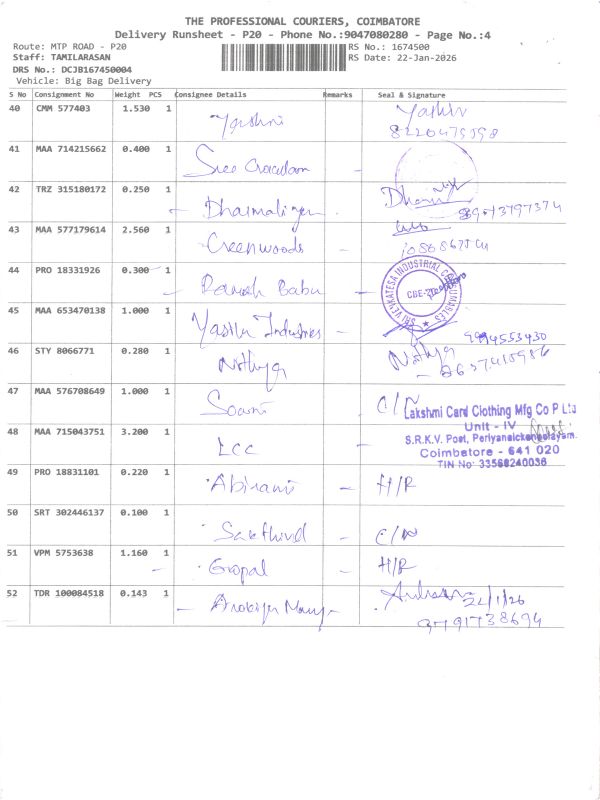 THE PROFESSIONAL COURIERS, COIMBATORE
Delivery Runsheet - P20 - Phone No.:9047080280 - Page No.:4
Route: MTP ROAD - P20
RS No.: 1674500
Staff: TAMILARASAN
RS Date: 22-Jan-2026
DRS No.: DCJB167450004
Vehicle: Big Bag Delivery
S No Consignment No Weight PCS Consignee Details Remarks Seal & Signature
40 CMM 577403 1.530 1 Yashni
41 MAA 714215662 0.400 1 Sree
42 TRZ 315180172 0.250 1 Dharmalinger
43 MAA 577179614 2.560 1 Greenwoods
44 PRO 18331926 0.300 1 Babu
SRI VENKATESA INDUSTRIAL CONSUMABLES
45 MAA 653470138 1.000 1 Industries
46 STY 8066771 0.280 1 Nithya Nithya
47 MAA 576708649 1.000 1 C/N
48 MAA 715043751 3.200 1 LCC
Lakshmi Card Clothing Mfg Co P Ltd
Unit - IV
S.R.K.V. Post, Periyanaickenpalayam.
Coimbatore - 641 020
TIN No: 33568240036
49 PRO 18831101 0.220 1 Abirami - H/R
50 SRT 302446137 0.100 1 - C/N
51 VPM 5753638 1.160 1 Gopal - H/R
52 TDR 100084518 0.143 1
22/1/26
9791738694